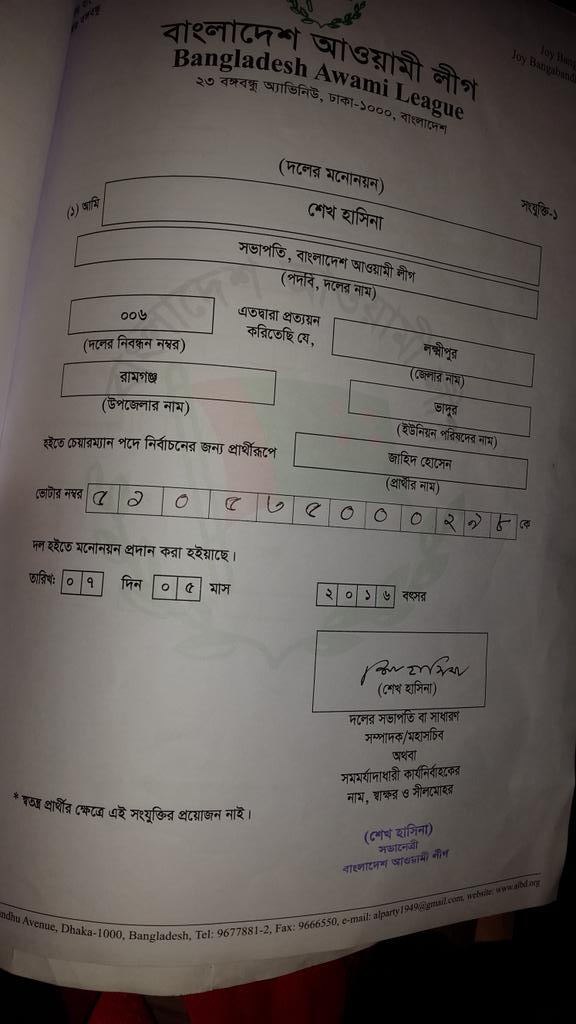 বাংলাদেশ আওয়ামী লীগ
Bangladesh Awami League
২৩ বঙ্গবন্ধু অ্যাভিনিউ, ঢাকা-১০০০, বাংলাদেশ
Joy
Joy
(দলের মনোনয়ন)
সংযুক্তি-১
(১) আমি
শেখ হাসিনা
সভাপতি, বাংলাদেশ আওয়ামী লীগ
(পদবি, দলের নাম)
০০৬
(দলের নিবন্ধন নম্বর)
এতদ্বারা প্রত্যয়ন
করিতেছি যে,
লক্ষ্মীপুর
(জেলার নাম)
রামগঞ্জ
(উপজেলার নাম)
ভাদুর
(ইউনিয়ন পরিষদের নাম)
হইতে চেয়ারম্যান পদে নির্বাচনের জন্য প্রার্থীরূপে
জাহিদ হোসেন
(প্রার্থীর নাম)
ভোটার নম্বর ৫১০৫৬৫০০০২৯৮ কে
দল হইতে মনোনয়ন প্রদান করা হইয়াছে।
তারিখ: ০৭ দিন ০৫ মাস ২০১৬ বৎসর
(শেখ হাসিনা)
দলের সভাপতি বা সাধারণ
সম্পাদক/মহাসচিব
অথবা
সমমর্যাদাধারী কার্যনির্বাহকের
নাম, স্বাক্ষর ও সীলমোহর
* স্বতন্ত্র প্রার্থীর ক্ষেত্রে এই সংযুক্তির প্রয়োজন নাই।
(শেখ হাসিনা)
সভানেত্রী
বাংলাদেশ আওয়ামী লীগ
Avenue, Dhaka-1000, Bangladesh, Tel: 9677881-2, Fax: 9666550, e-mail: alparty1949@gmail.com, website: www.albd.org